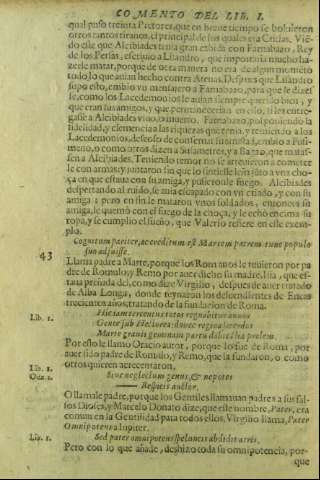 COMENTO DEL LIB. I.
qual puso treinta Pretores, que en breue tiempo se boluieron
otros tantos tiranos, el principal de los quales era Cridas. Vié-
do este que Alcibiades tenia gran cabida con Farnabazo, Rey
de los Persas, escriuio a Lisandro, que importaua mucho ha-
zerle matar, porque de otra manera no era de algun momēto
todo lo que auian hecho contra Atenas. Despues que Lisandro
supo esto, embio vn mensajero a Farnabazo, para que le dixes-
se, como los Lacedemonios le auian siempre querido bien, y
que eran sus amigos, y que permanecerian en ello, si les entre-
gasse a Alcibiades viuo, o muerto. Farnabazo, posponiendo la
fidelidad, y clemencia a las riquezas que tenia, y temiendo a los
Lacedemonios, desseoso de conseruar su tirania, embio a
meno, o como otros dizen a Sisametres, y a Bagao, que matas-
sen a Alcibiades. Teniendo temor no se atreuieron a cometer
le con armas, y juntaron sin que lo sintiesse leña a vna cho-
ça en que estaua con su amiga, y pusieronle fuego. Alcibiades
despertando al ruido, se auia escapado con vn criado, y con su
amiga: pero en fin le mataron vnos soldados, entonces su
amiga, le quemó con el fuego de la choça, y le echó encima su
ropa, y se cumplio el sueño, que Valerio refiere en este exem-
plo.
Cognatum pariter, ac creditum est Martem patrem tunc populo
suo adfuisse.
43
Llama padre a Marte, porque los Romanos le tuuieron por pa
dre de Romulo, y Remo por auer dicho su madre, Ilia, que es-
taua preñada del, como dize Virgilio, despues de auer tratado
de Alba Longa, donde reynaron los decendientes de Eneas
trecientos años, tratando de la fundacion de Roma.
Lib. 1.
Hic iam tercentum totos regnabitur annos
Gente sub Hectorea: donec regina sacerdos
Marte grauis geminam partu dabit Ilia prolem.
Por esto le llamo Oracio autor, porque lo fue de Roma, por
auer sido padre de Romulo, y Remo, que la fundaron, o como
otros quieren acrecentaron.
Lib. 1.
Oda. 2.
Siue neglectum genus, & nepotes
Respicis auctor.
O llamale padre, porque los Gentiles llamauan padres a sus fal-
sos Dioses, y Marcelo Donato dize, que este nombre, Pater, era
comun en la Gentilidad para todos ellos, Virgilio llama, Pater
Omnipotens a Iupiter.
Lib. 1.
Sed pater omnipotens speluncis abdidit atris.
Pero con lo que añade, deshizo toda su omnipotencia, por-
que